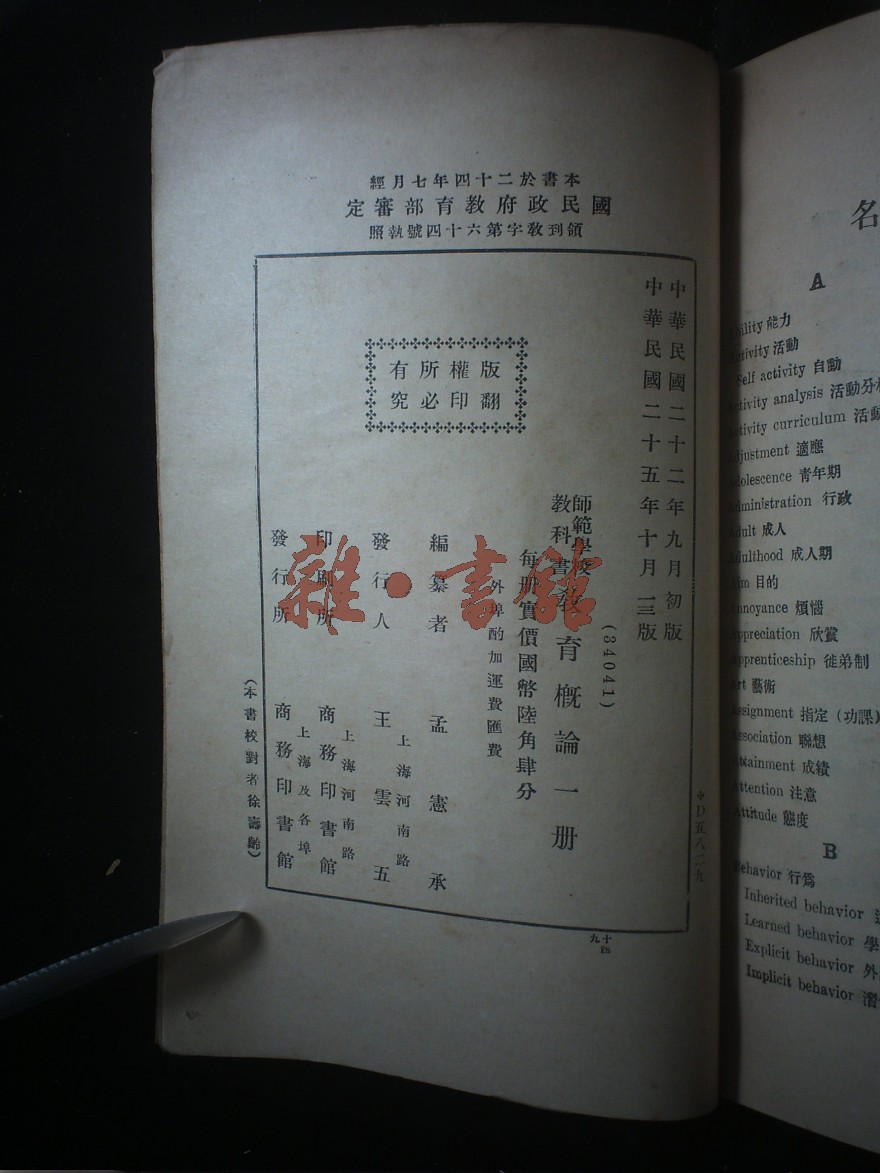 本書於二十四年七月經
國民政府教育部審定
領到教字第六十四號執照
中華民國二十二年九月初版
中華民國二十五年十月一三版
版權所有
翻印必究
(34041)
師範學校
教科書
教育概論一册
每册實價國幣陸角肆分
外埠酌加運費匯費
編纂者 孟憲承
發行人 上海河南路 王雲五
印刷所 上海河南路 商務印書館
發行所 上海及各埠 商務印書館
(本書校對者徐壽齡)
D五八二九
雜·書館
名
A
能力
活動
Self activity 自動
activity analysis 活動分析
activity curriculum 活動
Adjustment 適應
Adolescence 青年期
Administration 行政
Adult 成人
Adulthood 成人期
Aim 目的
Annoyance 煩惱
Appreciation 欣賞
Apprenticeship 徒弟制
Art 藝術
Assignment 指定(功課)
Association 聯想
Attainment 成績
Attention 注意
Attitude 態度
B
Behavior 行爲
Inherited behavior
Learned behavior 學
Explicit behavior 外
Implicit behavior 潛